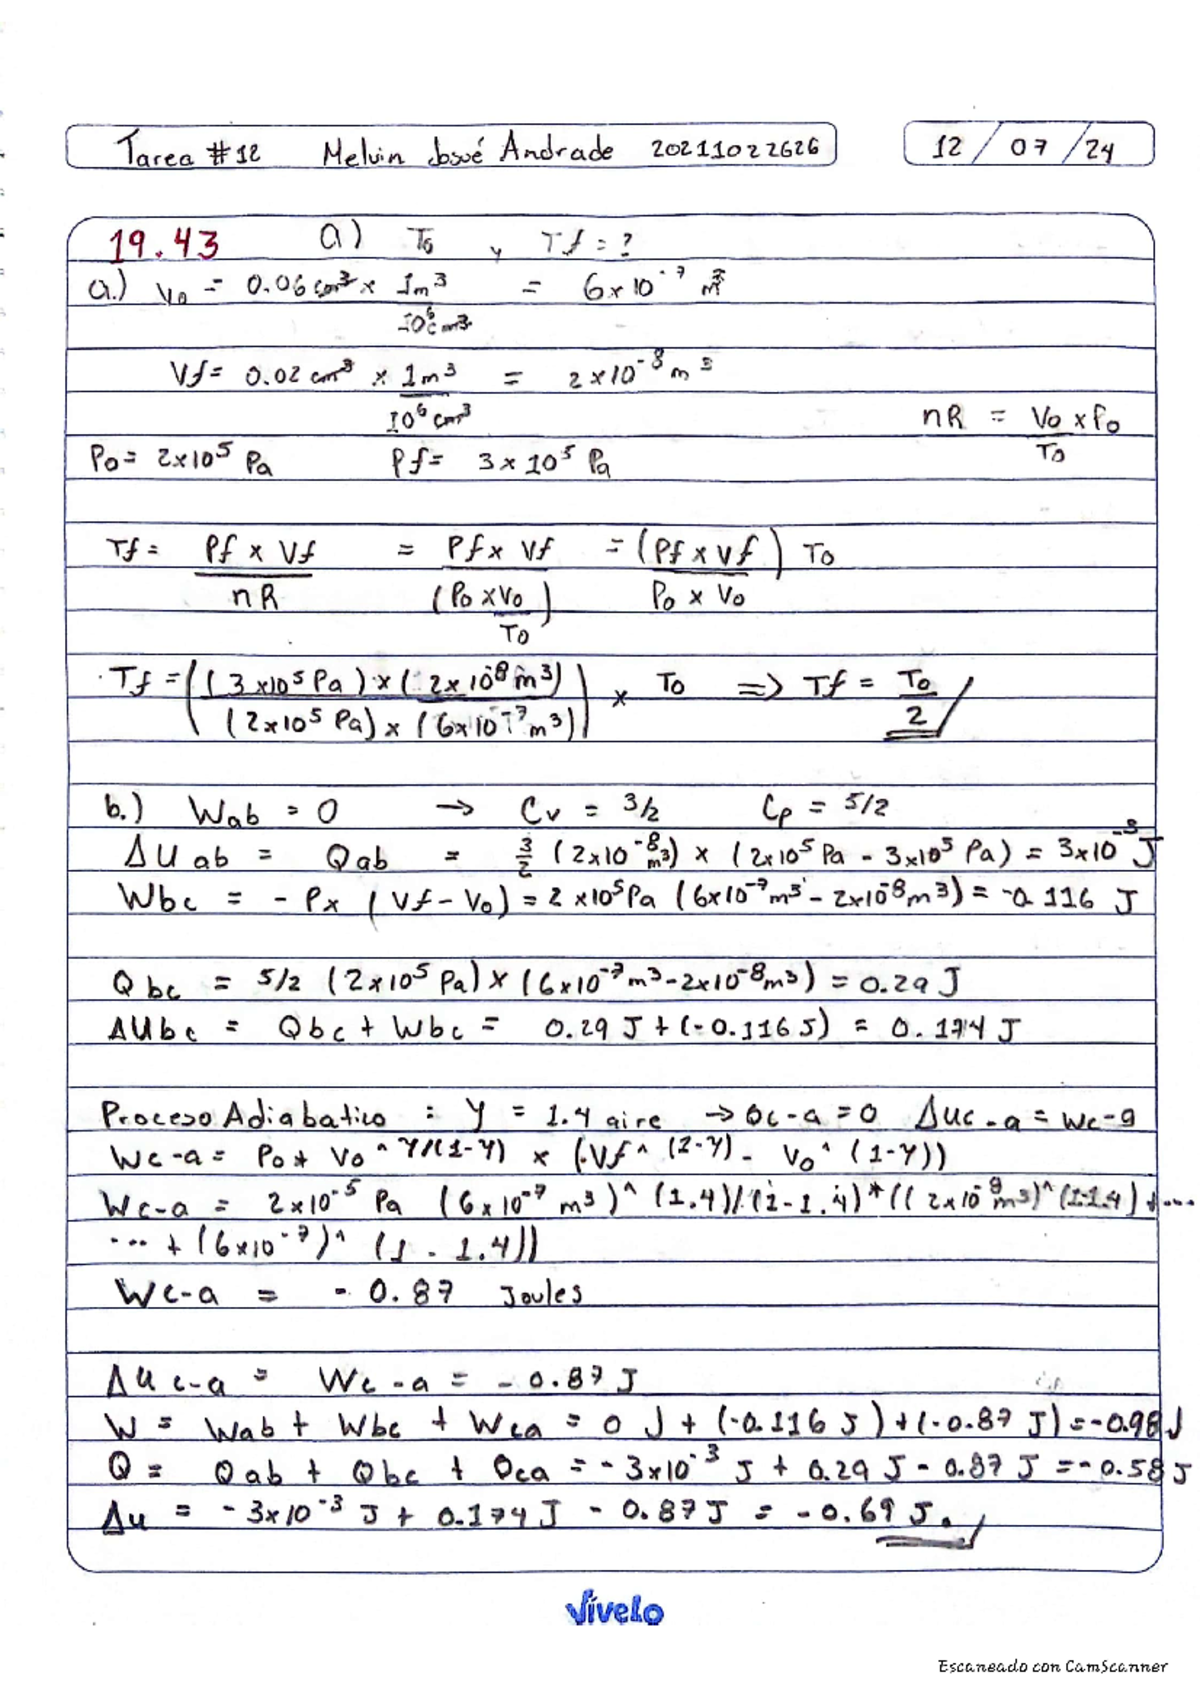 Tarea #12 Melvin Josué Andrade 20211022626 12 / 07 / 24
19.43 a) To y Tf = ?
a.) Vo = 0.06 cm³ x 1m³ / 10⁶cm³ = 6x10⁻⁷ m³
Vf = 0.02 cm³ x 1m³ / 10⁶ cm³ = 2x10⁻⁸ m³
nR = Vo x Po / To
Po = 2x10⁵ Pa Pf = 3 x 10⁵ Pa
Tf = Pf x Vf / nR = Pf x Vf / (Po x Vo / To) = (Pf x Vf / Po x Vo) To
Tf = ((3x10⁵ Pa) x (2x10⁻⁸ m³) / (2x10⁵ Pa) x (6x10⁻⁷ m³)) x To => Tf = To / 2
b.) Wab = 0 → Cv = 3/2 Cp = 5/2
ΔUab = Qab = 3/2 (2x10⁻⁸ m³) x (2x10⁵ Pa - 3x10⁵ Pa) = 3x10⁻³ J
Wbc = - Px (Vf - Vo) = 2x10⁵ Pa (6x10⁻⁷ m³ - 2x10⁻⁸ m³) = -0.116 J
Qbc = 5/2 (2x10⁵ Pa) x (6x10⁻⁷ m³ - 2x10⁻⁸ m³) = 0.29 J
ΔUbc = Qbc + Wbc = 0.29 J + (-0.116 J) = 0.174 J
Proceso Adiabatico : γ = 1.4 aire → Qc-a = 0 ΔUc-a = Wc-a
Wc-a = Po * Vo ^ γ/(1-γ) x (Vf ^ (1-γ) - Vo ^ (1-γ))
Wc-a = 2x10⁻⁵ Pa (6x10⁻⁷ m³)^ (1.4)/(1-1.4) * ((2x10⁻⁸ m³)^(1-1.4) + ...
... + (6x10⁻⁷)^ (1 - 1.4))
Wc-a = - 0.87 Joules
ΔUc-a = Wc-a = - 0.87 J
W = Wab + Wbc + Wca = 0 J + (-0.116 J) + (-0.87 J) = -0.98 J
Q = Qab + Qbc + Qca = - 3x10⁻³ J + 0.29 J - 0.87 J = -0.58 J
Δu = - 3x10⁻³ J + 0.174 J - 0.87 J = - 0.69 J.
Vívelo
Escaneado con CamScanner